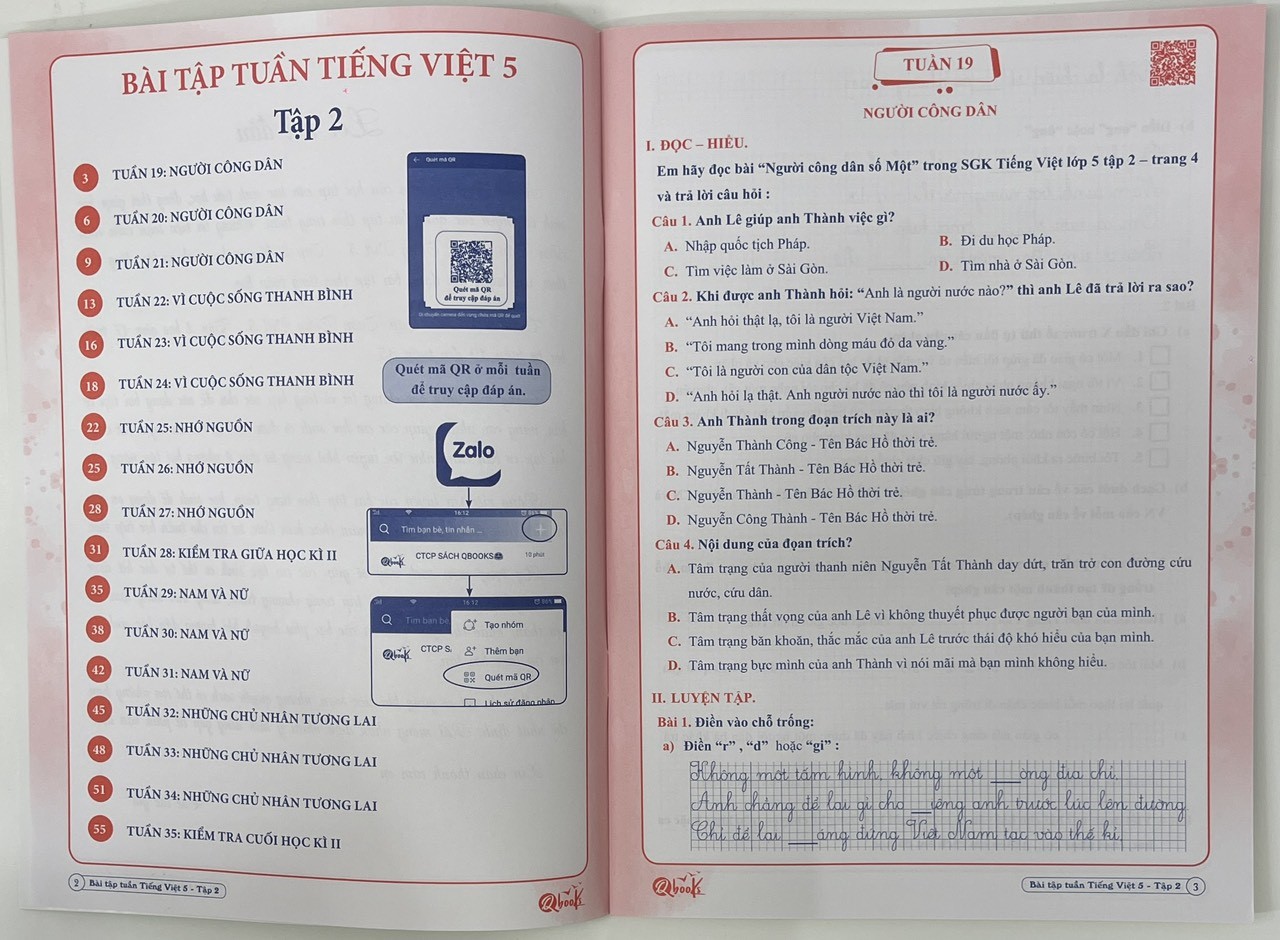 BÀI TẬP TUẦN TIẾNG VIỆT 5
Tập 2
3 TUẦN 19: NGƯỜI CÔNG DÂN
6 TUẦN 20: NGƯỜI CÔNG DÂN
9 TUẦN 21: NGƯỜI CÔNG DÂN
13 TUẦN 22: VÌ CUỘC SỐNG THANH BÌNH
16 TUẦN 23: VÌ CUỘC SỐNG THANH BÌNH
18 TUẦN 24: VÌ CUỘC SỐNG THANH BÌNH
22 TUẦN 25: NHỚ NGUỒN
25 TUẦN 26: NHỚ NGUỒN
28 TUẦN 27: NHỚ NGUỒN
31 TUẦN 28: KIỂM TRA GIỮA HỌC KÌ II
35 TUẦN 29: NAM VÀ NỮ
38 TUẦN 30: NAM VÀ NỮ
42 TUẦN 31: NAM VÀ NỮ
45 TUẦN 32: NHỮNG CHỦ NHÂN TƯƠNG LAI
48 TUẦN 33: NHỮNG CHỦ NHÂN TƯƠNG LAI
51 TUẦN 34: NHỮNG CHỦ NHÂN TƯƠNG LAI
55 TUẦN 35: KIỂM TRA CUỐI HỌC KÌ II
Quét mã QR
Quét mã QR
để truy cập đáp án
Di chuyển camera đến vùng chứa mã QR để quét
Quét mã QR ở mỗi tuần
để truy cập đáp án.
Zalo
16:12
Tìm bạn bè, tin nhắn ...
Qbook CTCP SÁCH QBOOKS 10 phút
16:12
Tìm bạn bè
Tạo nhóm
Qbook CTCP SÁ
Thêm bạn
Quét mã QR
Lịch sử đăng nhập
2 Bài tập tuần Tiếng Việt 5 - Tập 2
Qbook
TUẦN 19
NGƯỜI CÔNG DÂN
I. ĐỌC – HIỂU.
Em hãy đọc bài “Người công dân số Một” trong SGK Tiếng Việt lớp 5 tập 2 – trang 4
và trả lời câu hỏi :
Câu 1. Anh Lê giúp anh Thành việc gì?
A. Nhập quốc tịch Pháp. B. Đi du học Pháp.
C. Tìm việc làm ở Sài Gòn. D. Tìm nhà ở Sài Gòn.
Câu 2. Khi được anh Thành hỏi: “Anh là người nước nào?” thì anh Lê đã trả lời ra sao?
A. “Anh hỏi thật lạ, tôi là người Việt Nam.”
B. “Tôi mang trong mình dòng máu đỏ da vàng.”
C. “Tôi là người con của dân tộc Việt Nam.”
D. “Anh hỏi lạ thật. Anh người nước nào thì tôi là người nước ấy.”
Câu 3. Anh Thành trong đoạn trích này là ai?
A. Nguyễn Thành Công - Tên Bác Hồ thời trẻ.
B. Nguyễn Tất Thành - Tên Bác Hồ thời trẻ.
C. Nguyễn Thành - Tên Bác Hồ thời trẻ.
D. Nguyễn Công Thành - Tên Bác Hồ thời trẻ.
Câu 4. Nội dung của đọan trích?
A. Tâm trạng của người thanh niên Nguyễn Tất Thành day dứt, trăn trở con đường cứu
nước, cứu dân.
B. Tâm trạng thất vọng của anh Lê vì không thuyết phục được người bạn của mình.
C. Tâm trạng băn khoăn, thắc mắc của anh Lê trước thái độ khó hiểu của bạn mình.
D. Tâm trạng bực mình của anh Thành vì nói mãi mà bạn mình không hiểu.
II. LUYỆN TẬP.
Bài 1. Điền vào chỗ trống:
a) Điền “r” , “d” hoặc “gi” :
Không một tấm hình, không một ___òng địa chỉ
Anh chẳng để lại gì cho ___iêng anh trước lúc lên đường
Chỉ để lại ___áng đứng Việt Nam tạc vào thế kỉ
Qbook
Bài tập tuần Tiếng Việt 5 - Tập 2 3